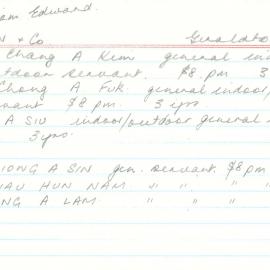 am Edward.
& Co Geraldto
Chang A Kem general in
tdoor servant. $8. pm 3
Chong A Fuk. general indoor/
vant $8 pm. 3 yrs.
A SIU indoor/outdoor general
3 yrs.
IONG A SIN gen. servant. $8 pm
IAU HUN NAM. " " " "
NG A LAM. " " "